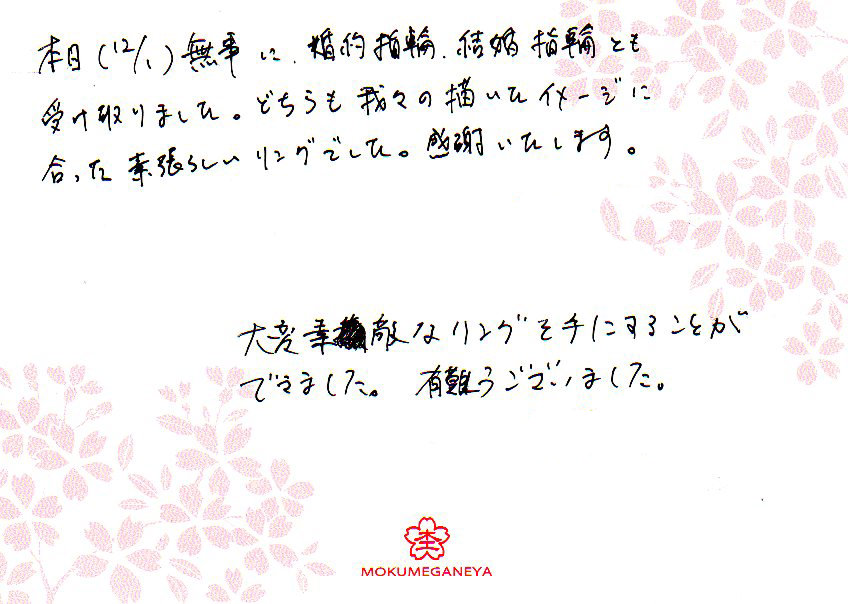 本日(12/1)無事に、婚約指輪、結婚指輪とも
受け取りました。どちらも我々の描いたイメージに
合った素張らしいリングでした。感謝いたします。
大変素敵なリングを手にすることが
できました。有難うございました。
MOKUMEGANEYA